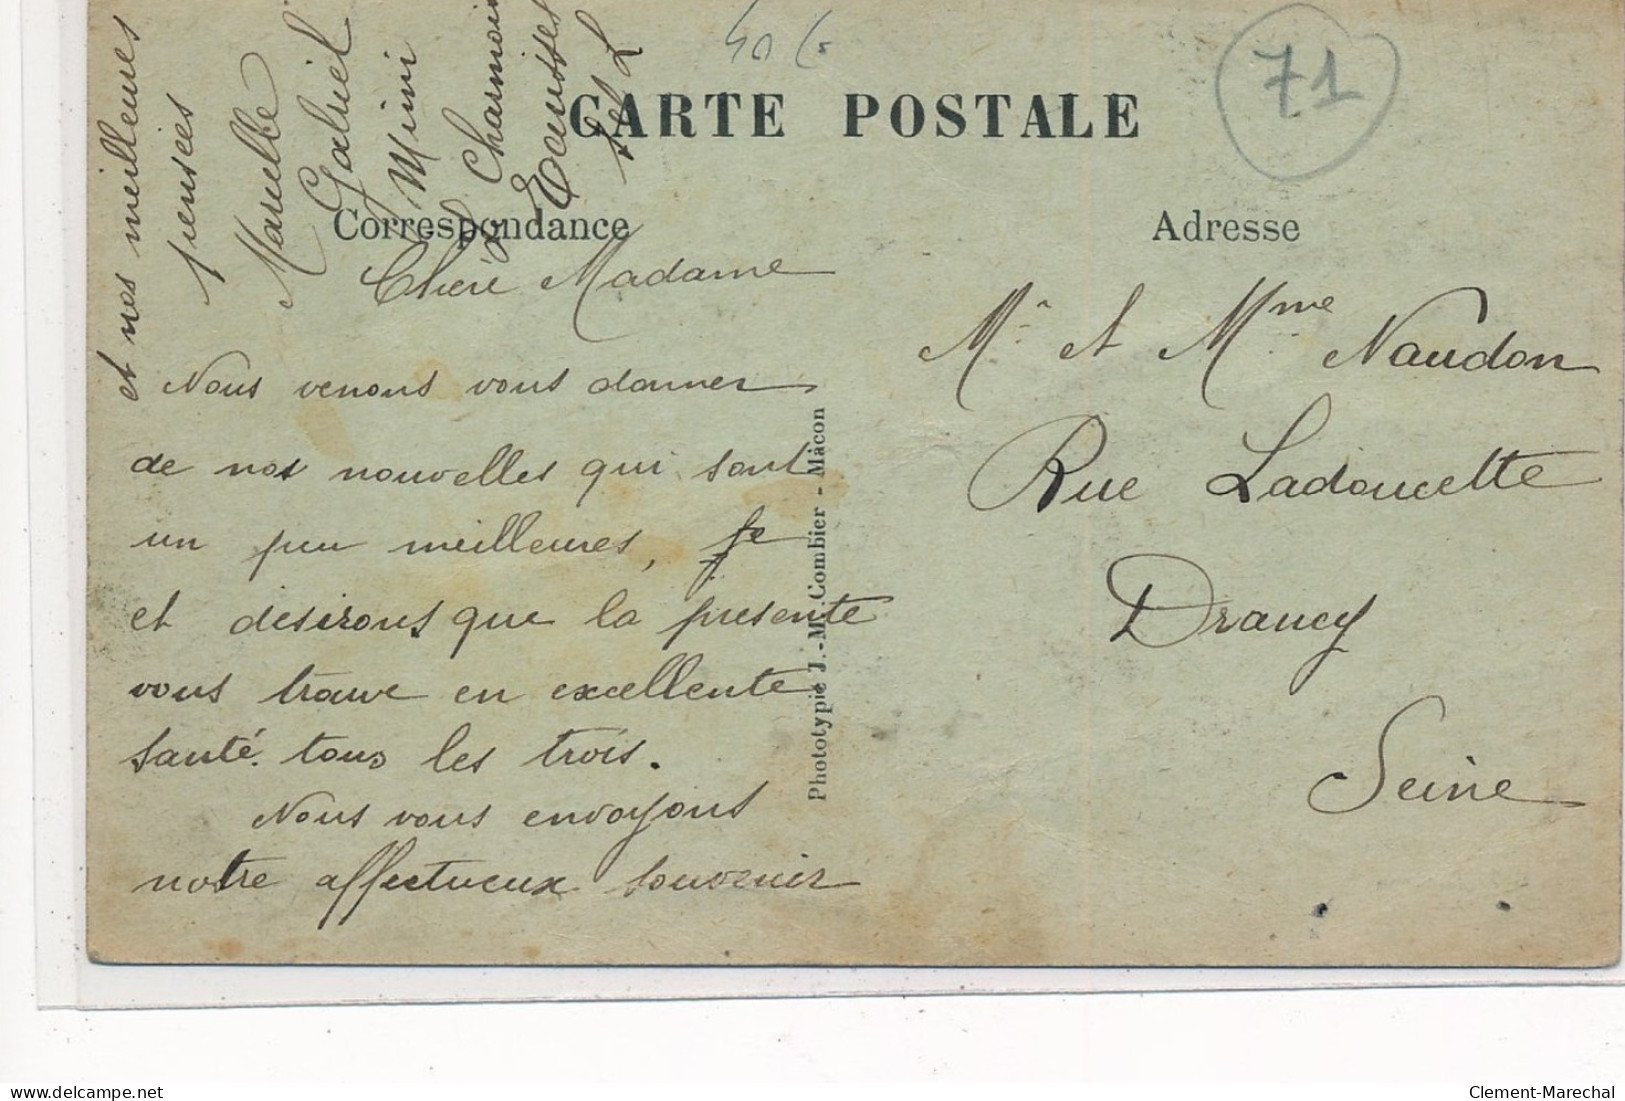 71
CARTE POSTALE
Correspondance
Adresse
Chère Madame
Nous venons vous donner
de nos nouvelles qui sont
un peu meilleures,
et désirons que la présente
vous trouve en excellente
santé. tous les trois.
Nous vous envoyons
notre affectueux souvenir
et nos meilleures
pensées
Gabriel
Mimi
Phototypie J.-M. Combier - Mâcon
Mr et Mme Naudon
Rue Ladoucette
Drancy
Seine
Clement-Marechal
delcampe.net